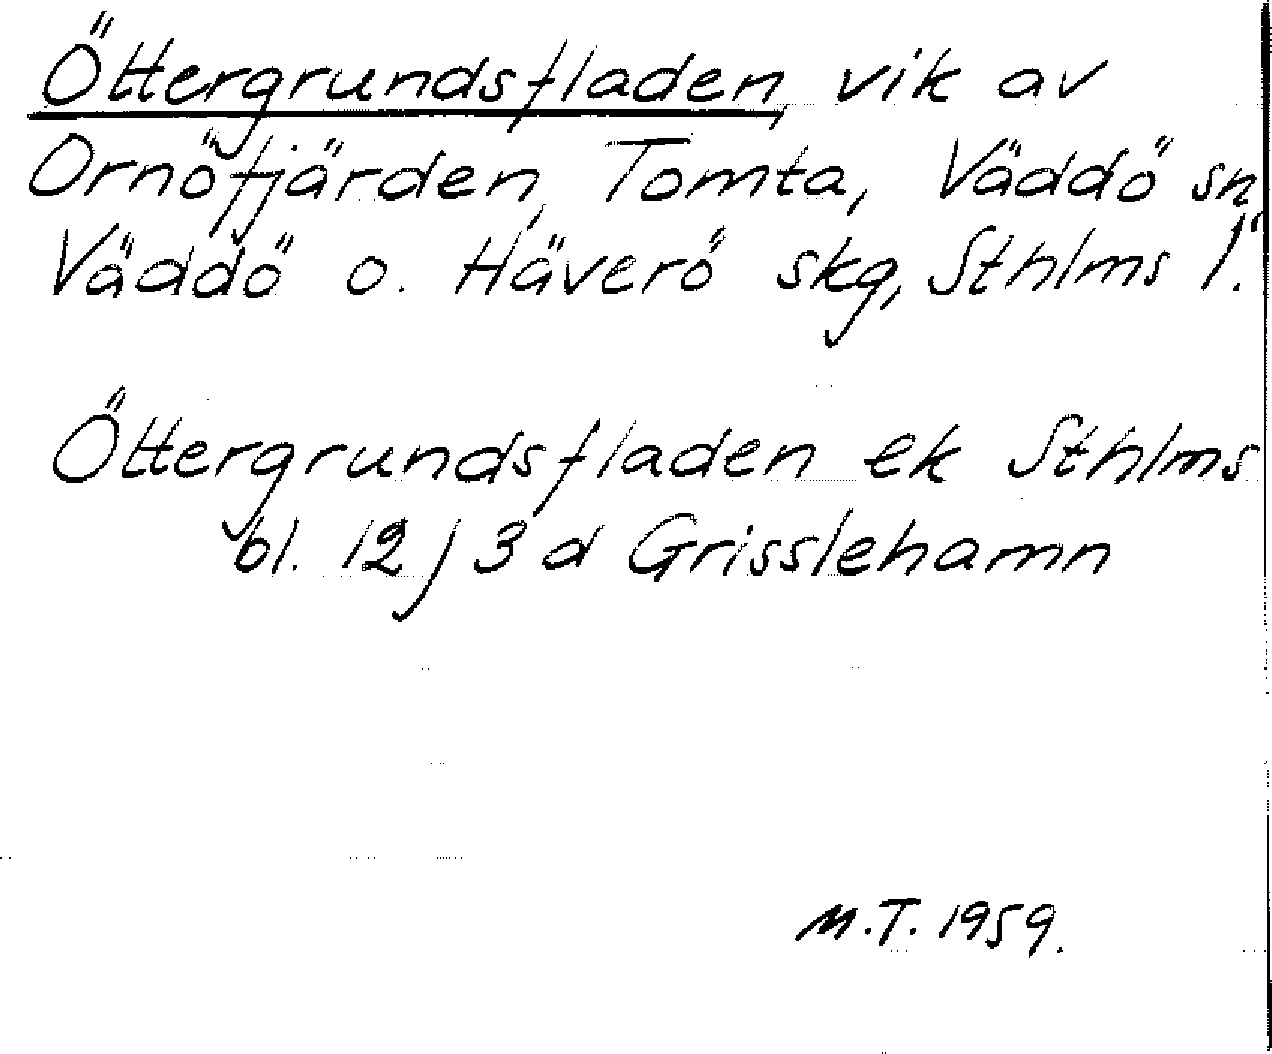 Öttergrundsfladen, vik av
Ornöfjärden, Tomta, Väddö sn,
Väddö o. Häverö skg, Sthlms l.
Öttergrundsfladen ek Sthlms
bl. 12 j 3 d Grisslehamn
M.T. 1959.